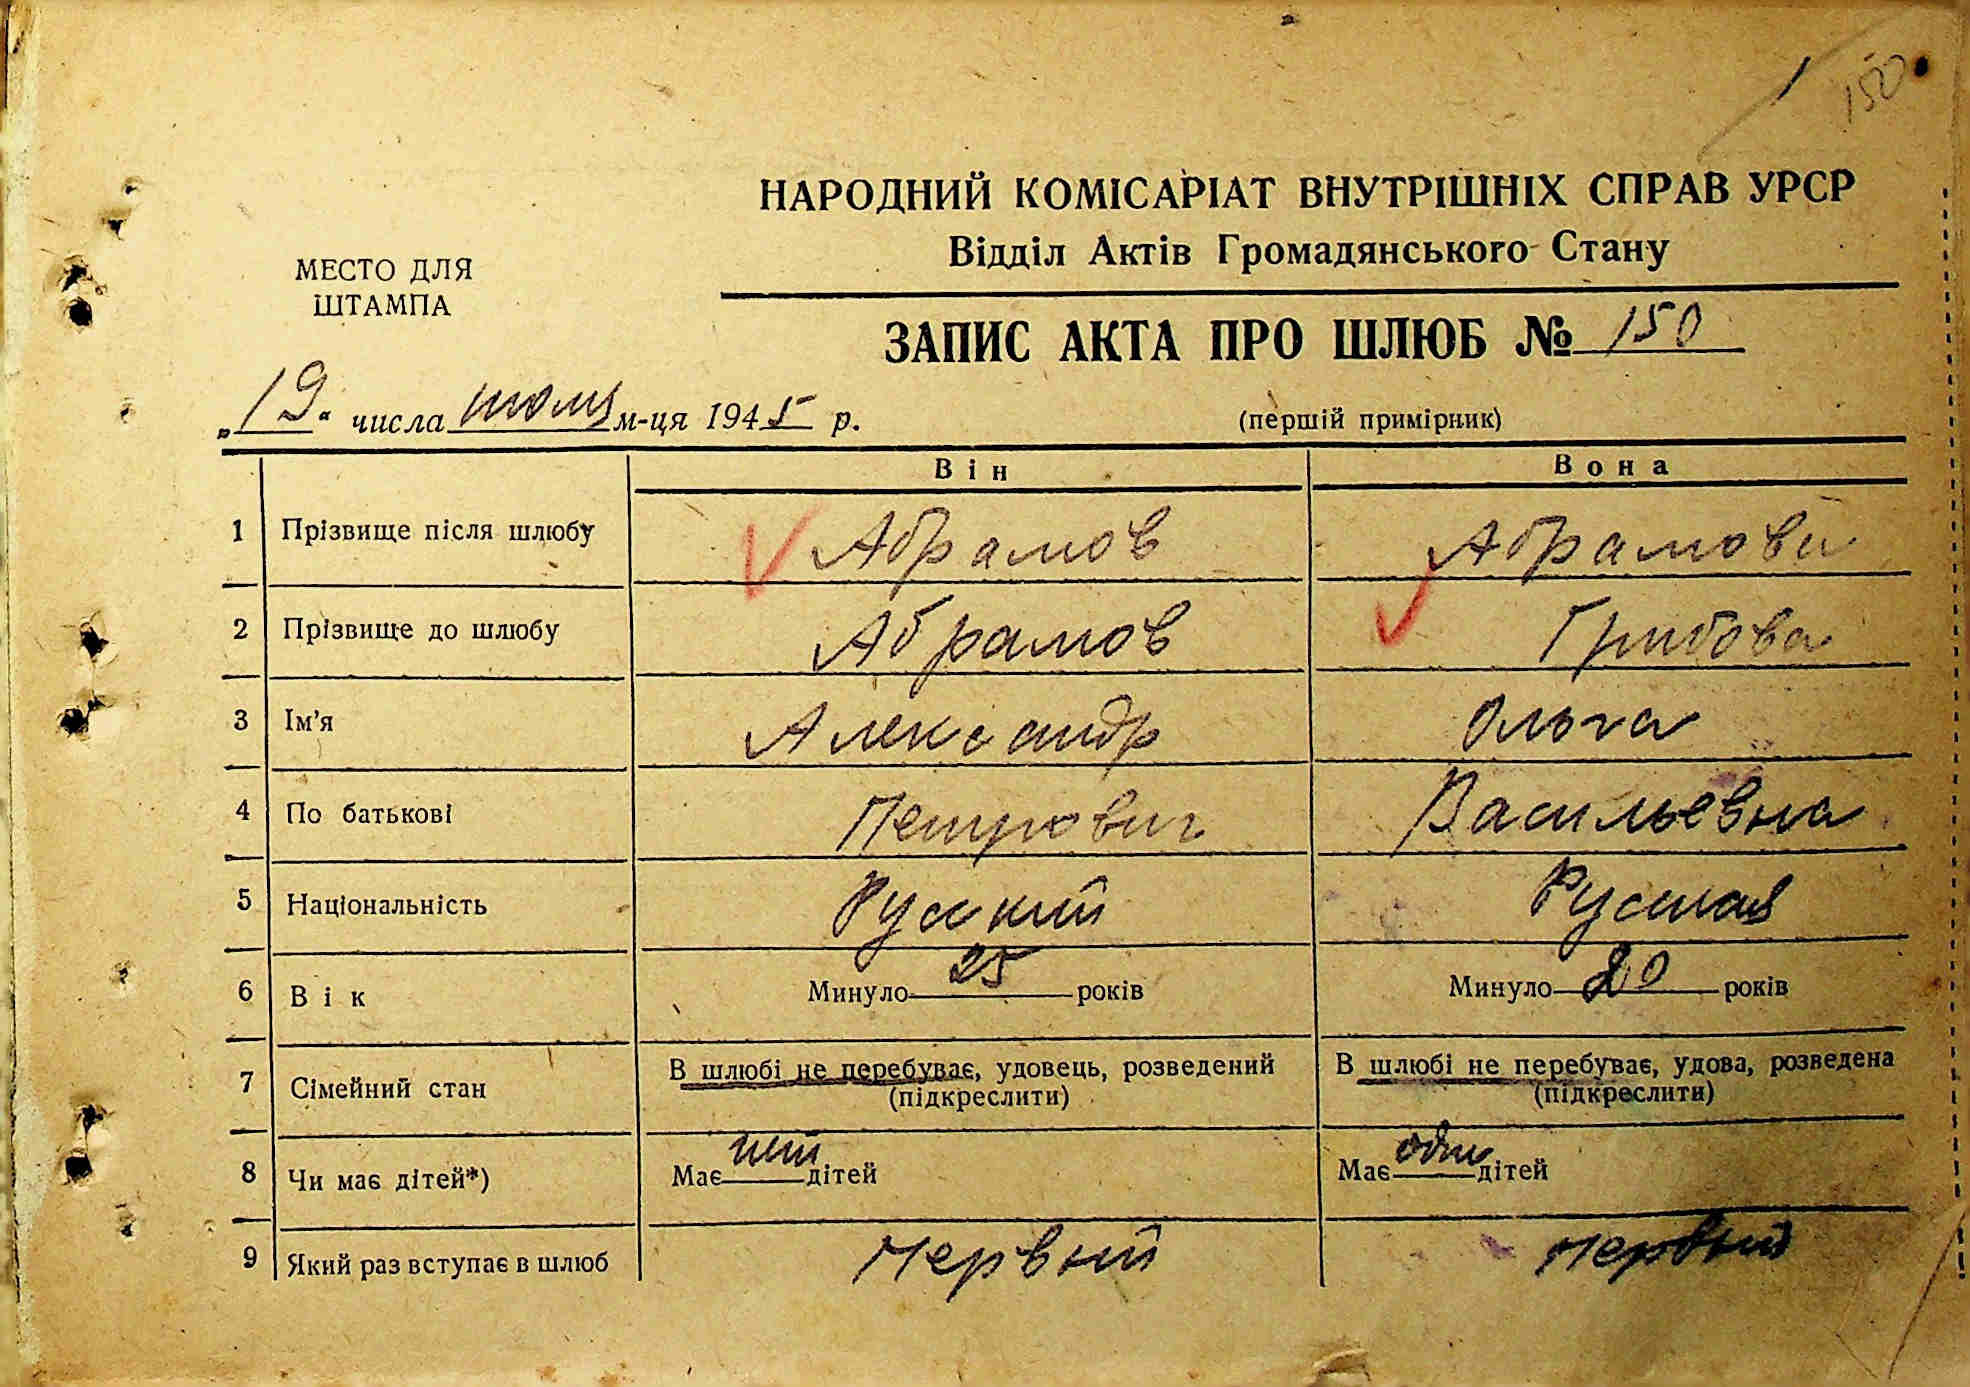 150
НАРОДНИЙ КОМІСАРІАТ ВНУТРІШНІХ СПРАВ УРСР
Відділ Актів Громадянського Стану
МЕСТО ДЛЯ
ШТАМПА
ЗАПИС АКТА ПРО ШЛЮБ № 150
„19“ числа июля м-ця 1945 р.
(першій примірник)
Він Вона
1 Прізвище після шлюбу Абрамов Абрамова
2 Прізвище до шлюбу Абрамов Грибова
3 Ім'я Александр Ольга
4 По батькові Петрович Васильевна
5 Національність Русский Русская
6 Вік Минуло 25 років Минуло 20 років
7 Сімейний стан В шлюбі не перебуває, удовець, розведений В шлюбі не перебуває, удова, розведена
(підкреслити) (підкреслити)
8 Чи має дітей*) Має нет дітей Має один дітей
9 Який раз вступає в шлюб Первый Первый